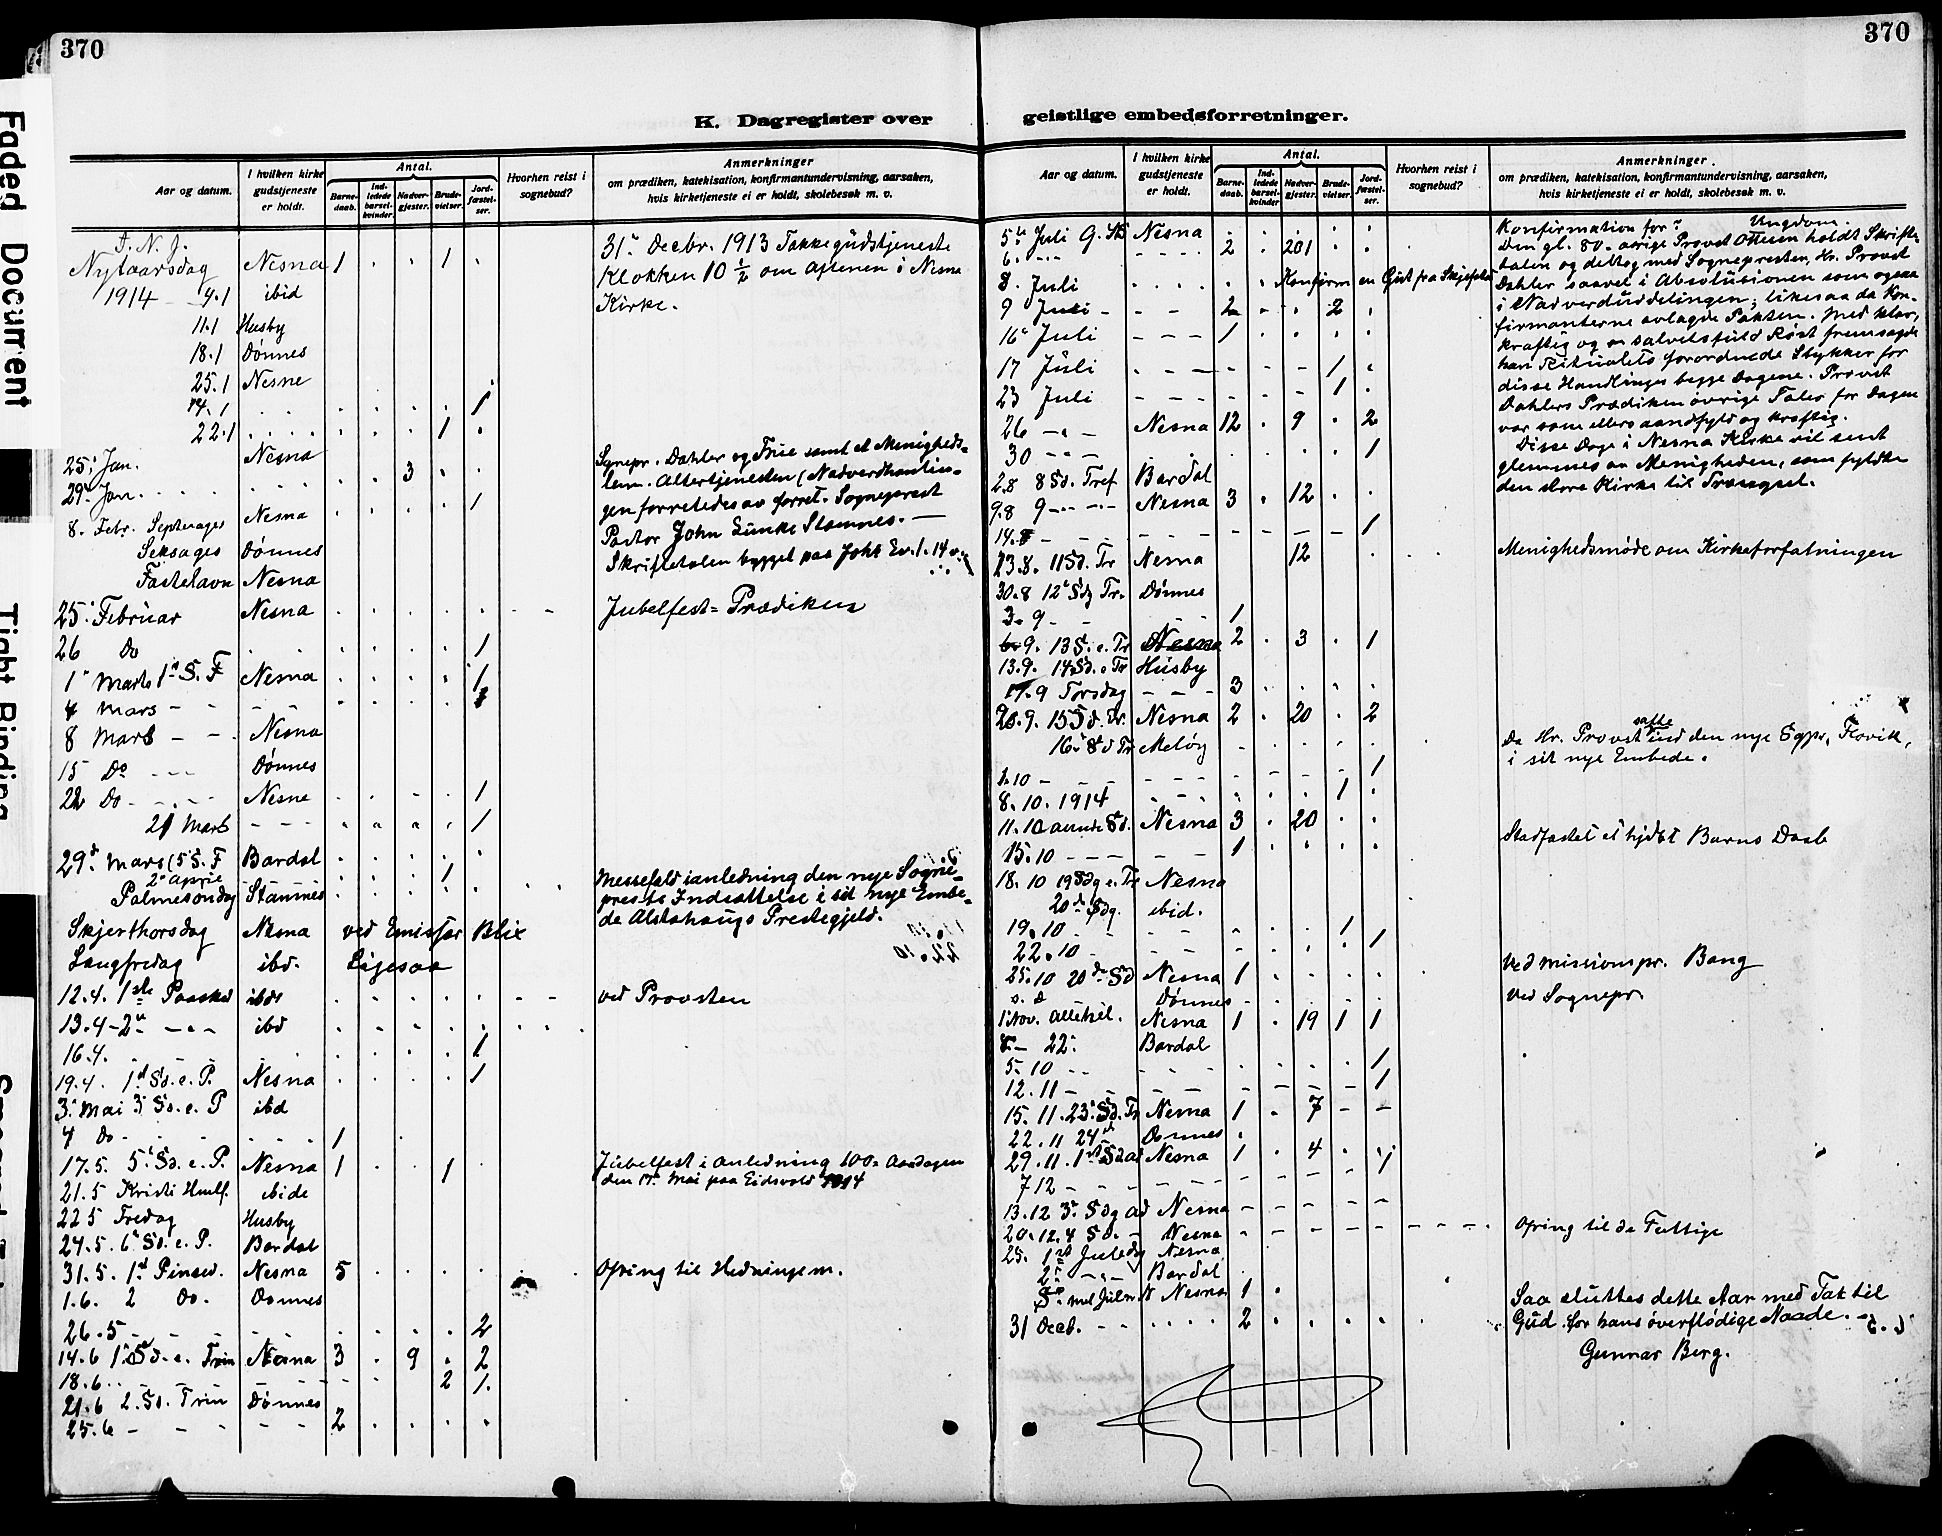 370
K. Dagregister over
Aar og datum.
I hvilken kirke gudstjeneste er holdt.
Antal.
Barne-daab.
Ind-ledede barsel-kvinder
Nadver-gjester.
Brude-vielser.
Jord-fæstel-ser.
Hvorhen reist i sognebud?
Anmerkninger
om prædiken, katekisation, konfirmantundervisning, aarsaken,
hvis kirketjeneste ei er holdt, skolebesøk m. v.
I. N. J.
Nytaarsdag Nesna 1 . . 1 . 31' Decbr. 1913 Takkegudstjeneste
1914 - 4.1 ibid Klokken 10 ½ om Aftenen i Nesna
11.1 Husby Kirke.
18.1 Dønnes
25.1 Nesne
14.1 . . . . . . 1
22.1 . . . . . . . 1 .
25. Jan. Nesna . . 3 . . Sognepr. Dahler og Frue samt et Menigheds-
29. Jan. . . . . . . . . lem. Altertjenesten (Nadverdhandlin-
8. Febr. Septuages Nesna . . . . 1 gen forrettedes av forret. Sogneprest
Seksages Dønnes Pastor John Lunke Stamnes. —
Fastelavn Nesna Skriftetalen bygget paa Johs Ev. 1. 14 v.
25. Februar Nesna . . . . . - - Jubelfest = Prædiken
26 Do . . . . . . 1
1' Marts 1' S. F Nesna . . . . 1
4 Mars - - - - . . . . 1
8 Mars - - Nesna
15 Do - - - Dønnes
22 Do - - - Nesne . . . . 1
21 Mars - - - . . . . 1
29. Mars (5 S. F Bardal . . . . .
2' April 1
Palmesondag Stamnes . . . . . Messefald ianledning den nye Sogne-
prests Indsættelse i sit nye Embe-
de Alstahaugs Prestegjeld.
Skjerthorsdag Nesna ved Emissær Blix
Langfredag ibd. Ligesaa
12.4. 1ste Paasked ibds . . . . . - - ved Provsten
13.4 - 2' - - - ibd . . . . . . . .
16.4. - - - - . . . . 1
19.4. 1' Sd. e. P. Nesna . . . . 1
3. Mai 3' Sd. e. P ibd
4 Do - . . . . . 1 .
17.5. 5' Sd. e. P. Nesna 1 . . 1 . Jubelfest i anledning 100 = Aarsdagen
21.5 Kristi Hmlf. ibide den 17. Mai paa Eidsvold 1914
22 5 Fredag Husby
24.5. 6' Sd. e. P. Bardal
31.5. 1' Pinsed. Nesna 5 . . . . . Ofring til Hedningem.
1.6. 2 Do. Donnes
26.5 - - - - - . . . . 2
14.6 1' Sd. e. Trin Nesna 3 . 9 . 2
18.6 . . - - - - - - . . 2 1.
21.6 2. Sd. Trin Dønnes
25.6 - - - - - 2 . . . .
370
geistlige embedsforretninger.
Aar og datum.
I hvilken kirke gudstjeneste er holdt.
Antal.
Barne-daab.
Ind-ledede barsel-kvinder
Nadver-gjester.
Brude-vielser.
Jord-fæstel-ser.
Hvorhen reist i sognebud?
Anmerkninger.
om prædiken, katekisation, konfirmantundervisning, aarsaken,
hvis kirketjeneste ei er holdt, skolebesøk m. v.
5' Juli Nesna . . . . . Konfirmation for Ungdom.
6. - - - - - - 2 . 201 . . . Den gl. 80-aarige Provst Ottesen holdt Skrifte-
talen og deltog med Sognepresten, Hr. Provst
8. Juli . . . . . . Konfirm en Gut fra Skjefsta Dahler saavel i Absolutionen som ogsaa
9 Juli - - - - 2 - . 2 . i Nadverduddelingen; likesaa da Kon-
16' Juli - - - 1 . . . . firmanterne avlagde Pakten. Med klar,
kraftig og en salvelsfuld Røst fremsagde
17 Juli . - - - - - 1 . han Ritualets forordnede Stykker for
23 Juli - - - - - - 1 . disse Handlinger begge Dagene. Provst
Dahlers Prædiken øvrige Taler for Dagen
26 - - - Nesna 12 . 9 . 2 var som ellers aandfyld og kraftig.
30 - - - . . . . 1 Disse Dage i Nesna Kirke vil sent
2.8 8 Sd. Tref Bardal glemmes av Menigheden, som fyldte
9.8 9 - - - - Nesna 3 . 12 . . den store Kirke til Trængsel.
14.8 - - - - - - - - - 1
23.8. 11 Sd. Tr Nesna 12 . . . . Menighedsmøde om Kirkeforfatningen
30.8 12' Sdg Tr. Dønnes
3.9 - - - - - 1
6.9. 13 S. e. Tr Nesna 2 . 3 . 1
13.9. 14 Sd. e Tr Husby
17.9 Torsdag - - - 3 . . . .
20.9. 15 Sd. Tr. Nesna 2 . 20 . 2
16' Sd Tr Meløy - . . . . . Da Hr. Provst satte ind den nye Sgpr. Flovik,
i sit nye Embede.
1.10 - - - - - - - - - 1
8.10. 1914 . - - - . . . 1 .
11.10 Sd. Nesna 3 . 20 . . Stadfæstet et hjdbt Barns Daab
15.10 - - - - - 1 . . . .
18.10 19 Sdg e. Tr Nesna
20' Sdg. ibid.
19.10 - - - - - . . 1
22.10 - - - - - . . . 1
25.10 20de Sd Nesna 1 . . . . Ved Missionspr. Bang
s. d Dønnes - . . . . Ved Sognepr
1 Nov. Allehel. Nesna 1 . 19 1 1
8 - 22' Bardal
5.10 - - - - - . . . . 1
12.11 - - - - - - - - - 1
15.11. 23' Sd. Tr Nesna 1 . 7 - -
22.11 24' - Donnes .
29.11. 1' Sd ad Nesna 1 . 4 . .
7 12 - - - - - - - - - 1
13.12 3' Sdg ad Nesna - - - - -
20.12. 4 Sd. - Nesna - - - - - - - - . Ofring til de Fattige
25. 1st Juledg Nesna
2' - - - Bardal
S' mel Jul Nesna 1 . Saa sluttes dette Aar med Tak til
31 Decb. - - . . . . 2 . . . . . Gud for hans overflødige Naade. -
Gunnar Berg.
Faded Document
Tight Binding